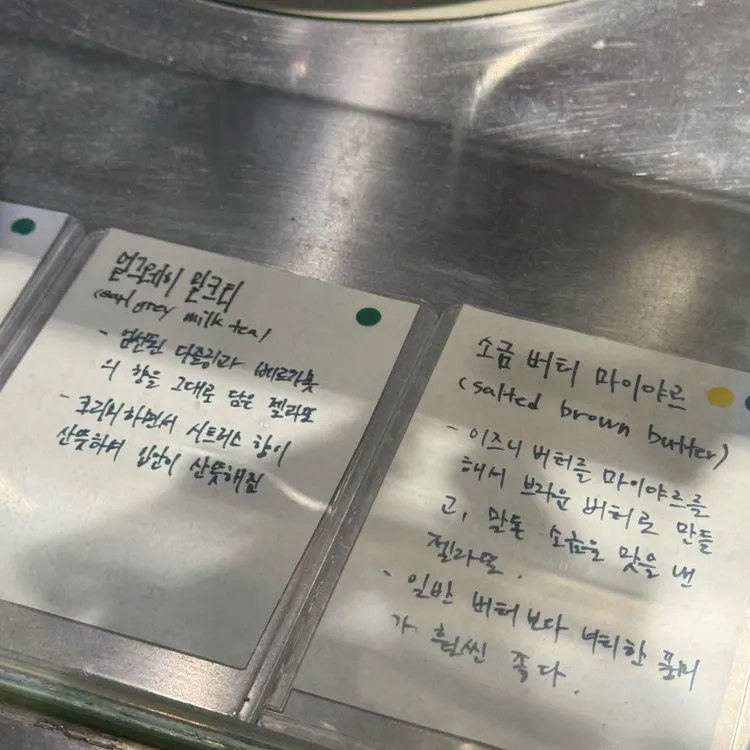 얼그레이 밀크티
(earl grey milk tea)
- 엄선된 다즐링과 베르가못
의 향을 그대로 담은 젤라또
- 크리미하면서 시트러스 향이
산뜻하여 입안이 산뜻해짐
소금 버터 마이야르
(salted brown butter)
- 이즈니 버터를 마이야르를
해서 브라운 버터로 만들
고, 말돈 소금을 맛을 낸
젤라또.
- 일반 버터보다 너티한 풍미
가 훨씬 좋다.